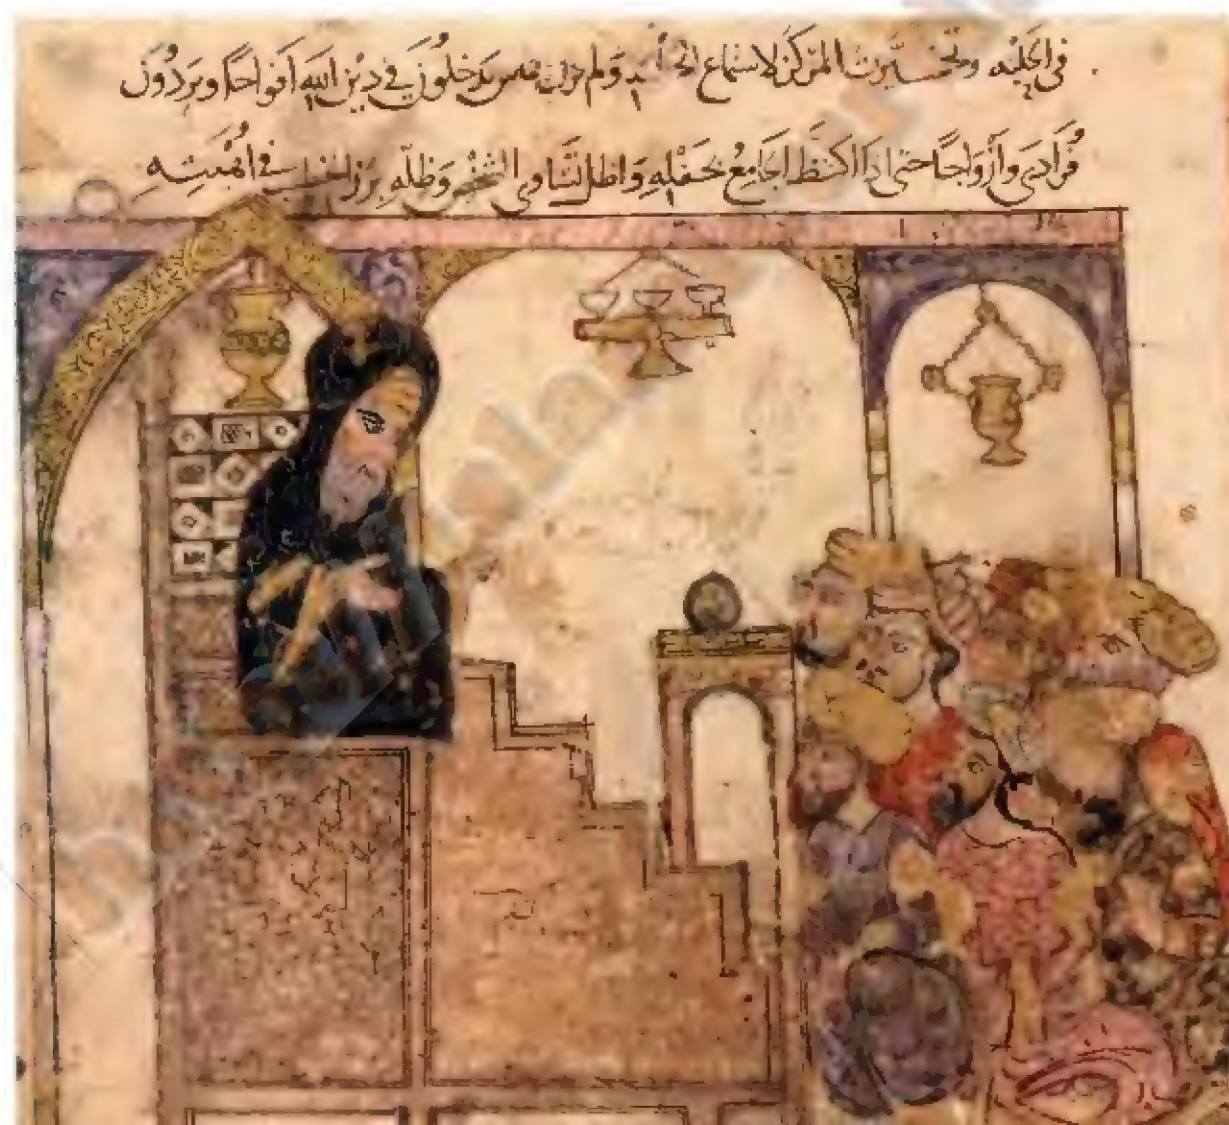 في الحلبة وتخيّرت المركز لاستماع الخطبة ولم يزل الناس يدخلون في دين الله أفواجا ويردون
فرادى وأزواجا حتى إذا اكتظ الجامع بحفله وأظل تساوي الشخص وظله برز الخطيب في أهبته